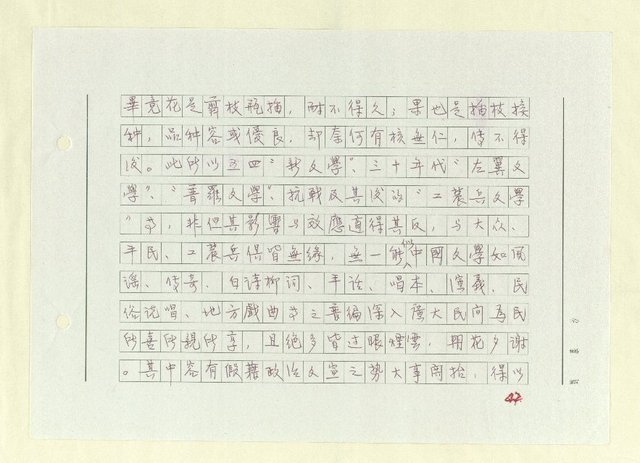 畢竟花是剪枝瓶插，耐不得久；果也是插枝接
种，品种容或優良，却奈何有核無仁，傳不得
後。此所以五四“新文學”、三十年代“左翼文
學”、“普羅文學”、抗戰及其後的“工農兵文學
”等，非但其影響与效應適得其反，与大众、
平民、工農兵俱皆無緣，無一能似中國文學如風
謠、傳奇、白詩柳词、平话、唱本、演義、民
俗说唱、地方戲曲等之普遍深入廣大民间為民
所喜所親所享，且絶多皆过眼煙雲，朝花夕谢
。其中容有假藉政治文宣之势大事開抬，得以
42